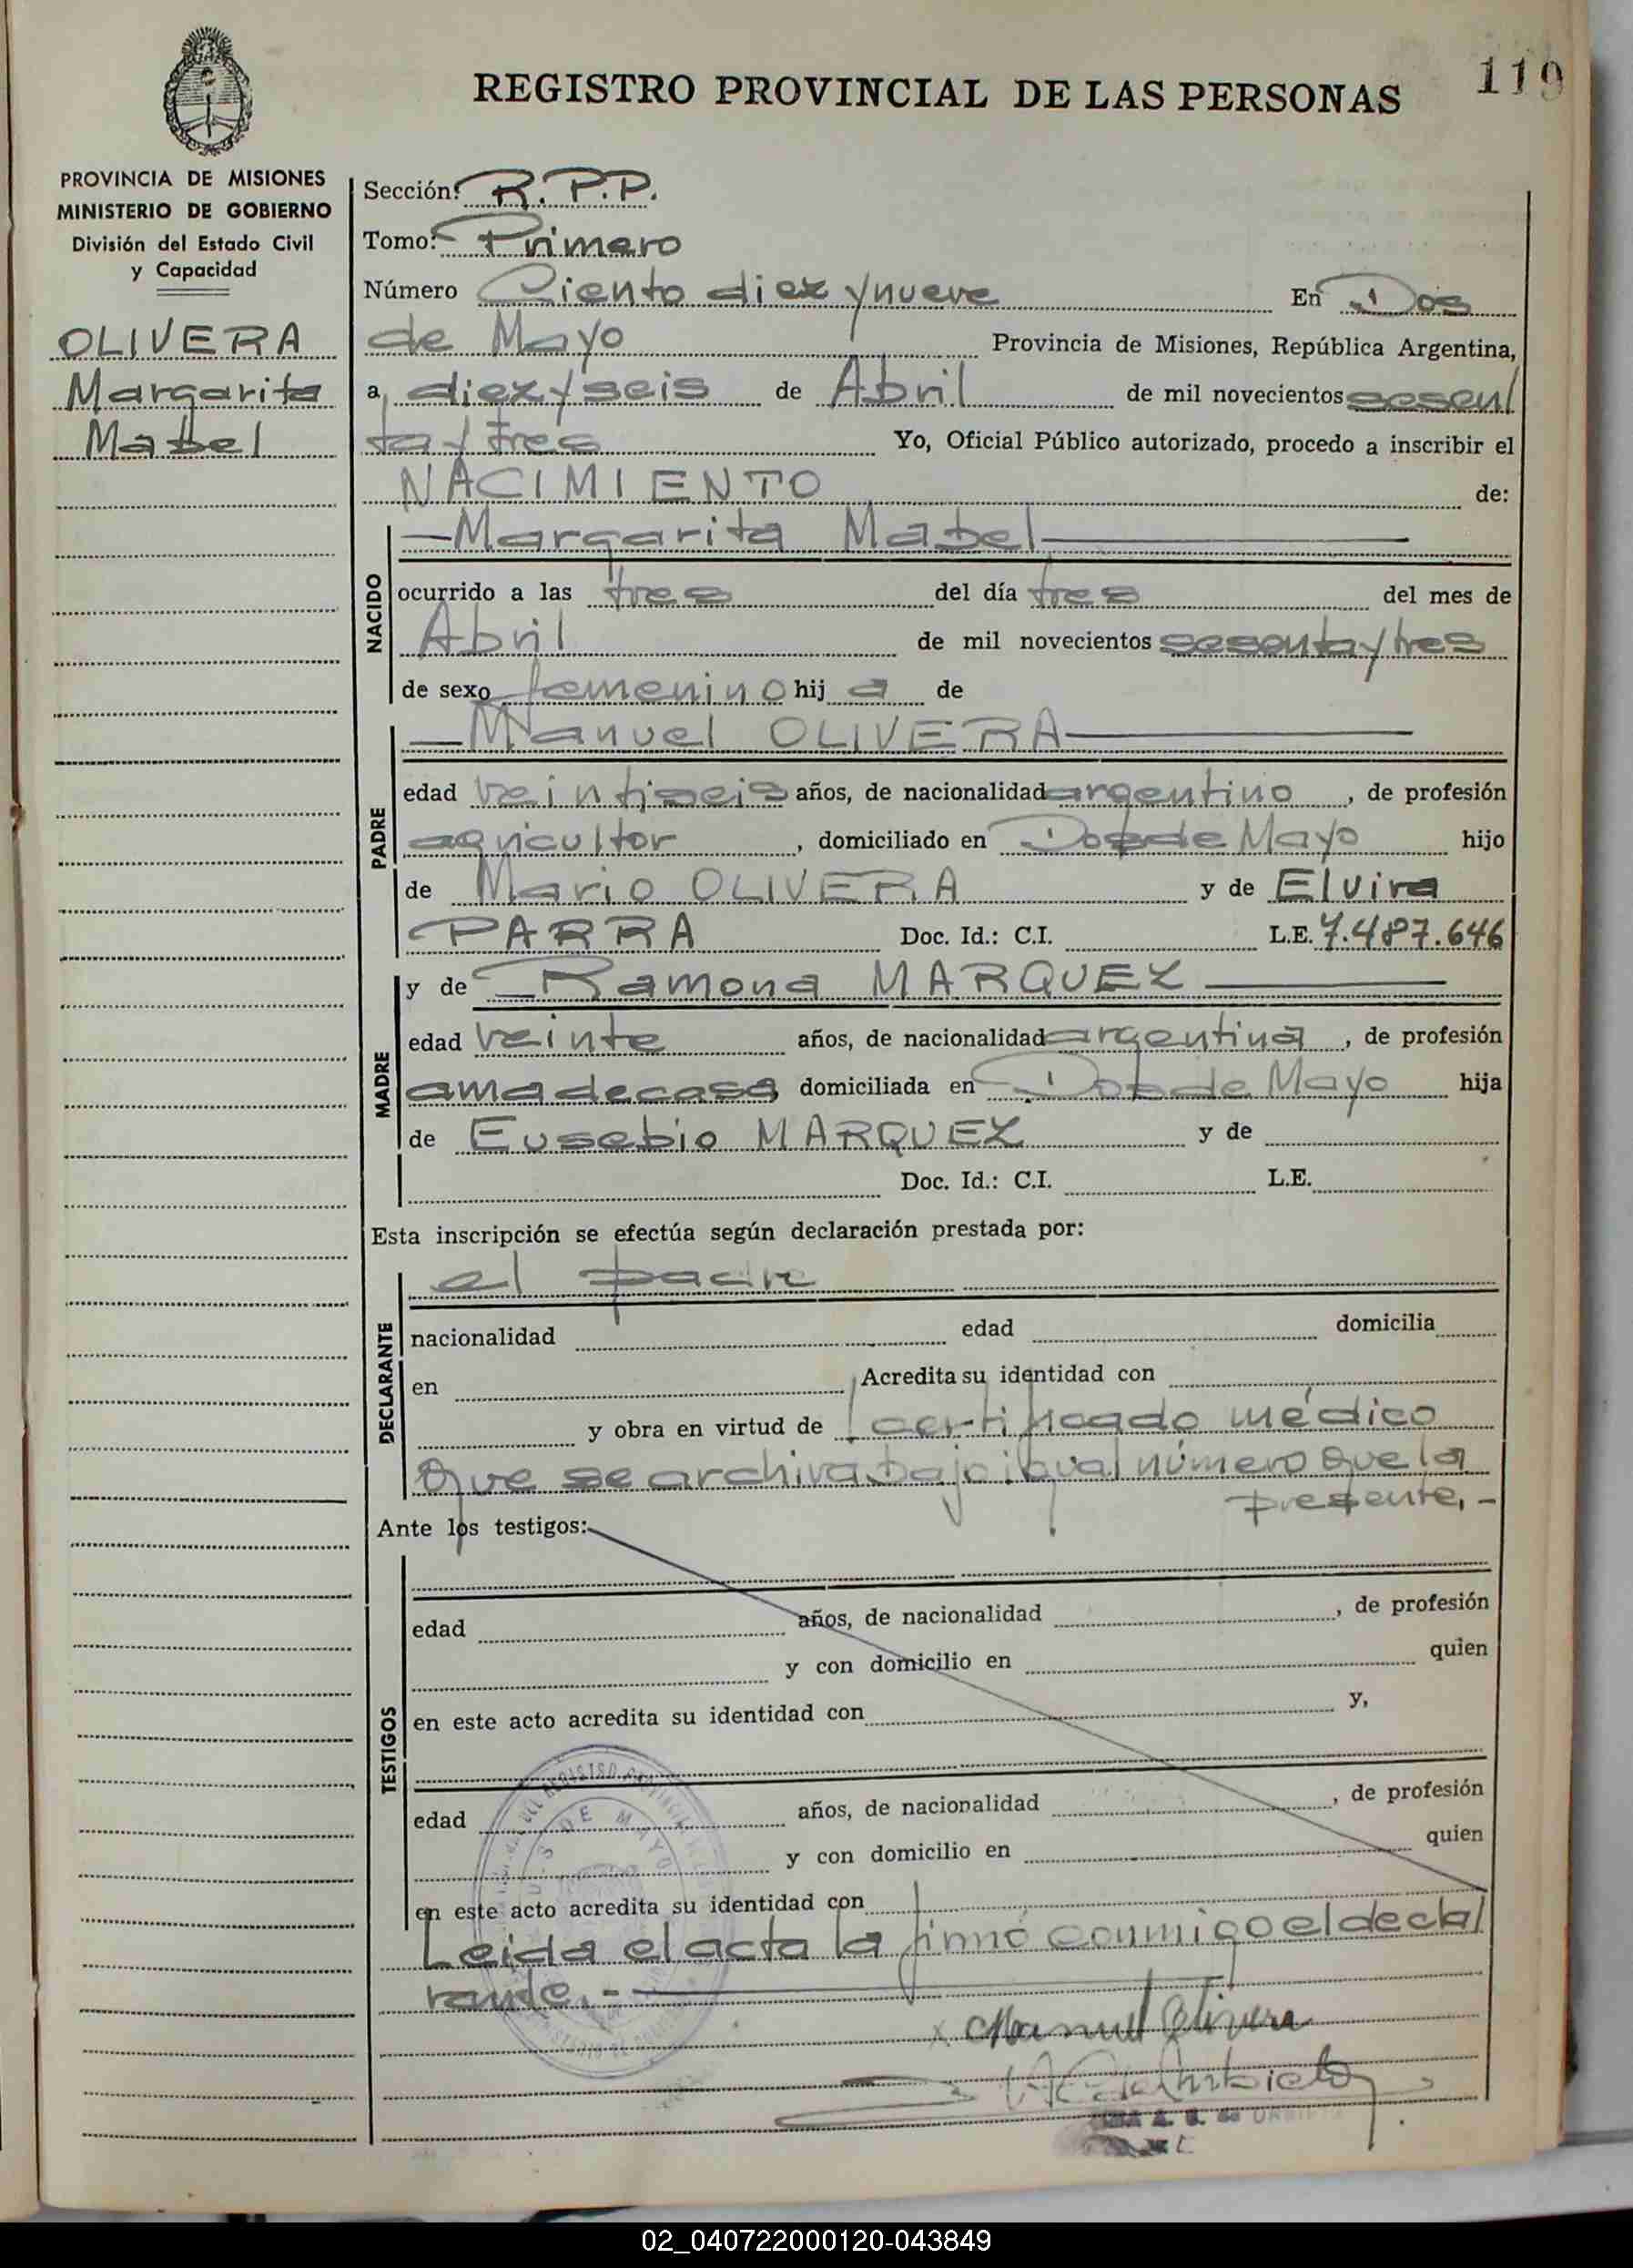 REGISTRO PROVINCIAL DE LAS PERSONAS
119
PROVINCIA DE MISIONES
MINISTERIO DE GOBIERNO
División del Estado Civil
y Capacidad
OLIVERA
Margarita
Mabel
Sección: R.P.P.
Tomo: Primero
Número Ciento diez y nueve En Dos
de Mayo Provincia de Misiones, República Argentina,
a diez y seis de Abril de mil novecientos sesen/
ta y tres Yo, Oficial Público autorizado, procedo a inscribir el
NACIMIENTO de:
NACIDO
—Margarita Mabel—
ocurrido a las tres del día tres del mes de
Abril de mil novecientos sesenta y tres
de sexo femenino hij a de
PADRE
—Manuel OLIVERA—
edad veintiseis años, de nacionalidad argentino, de profesión
agricultor, domiciliado en Dos de Mayo hijo
de Mario OLIVERA y de Elvira
PARRA Doc. Id.: C.I. L.E. 7.487.646
MADRE
y de —Ramona MARQUEZ—
edad veinte años, de nacionalidad argentina, de profesión
ama de casa domiciliada en Dos de Mayo hija
de Eusebio MARQUEZ y de
Doc. Id.: C.I. L.E.
Esta inscripción se efectúa según declaración prestada por:
DECLARANTE
el padre
nacionalidad edad domicilia
en Acredita su identidad con
y obra en virtud de certificado médico
que se archiva bajo igual número que la
presente.-
Ante los testigos:
TESTIGOS
edad años, de nacionalidad , de profesión
y con domicilio en quien
en este acto acredita su identidad con y,
edad años, de nacionalidad , de profesión
y con domicilio en quien
en este acto acredita su identidad con
Leida el acta la firmó conmigo el decla/
rante.-
DEL REGISTRO PROVINCIAL
DE MAYO
x Manuel Olivera
02_040722000120-043849